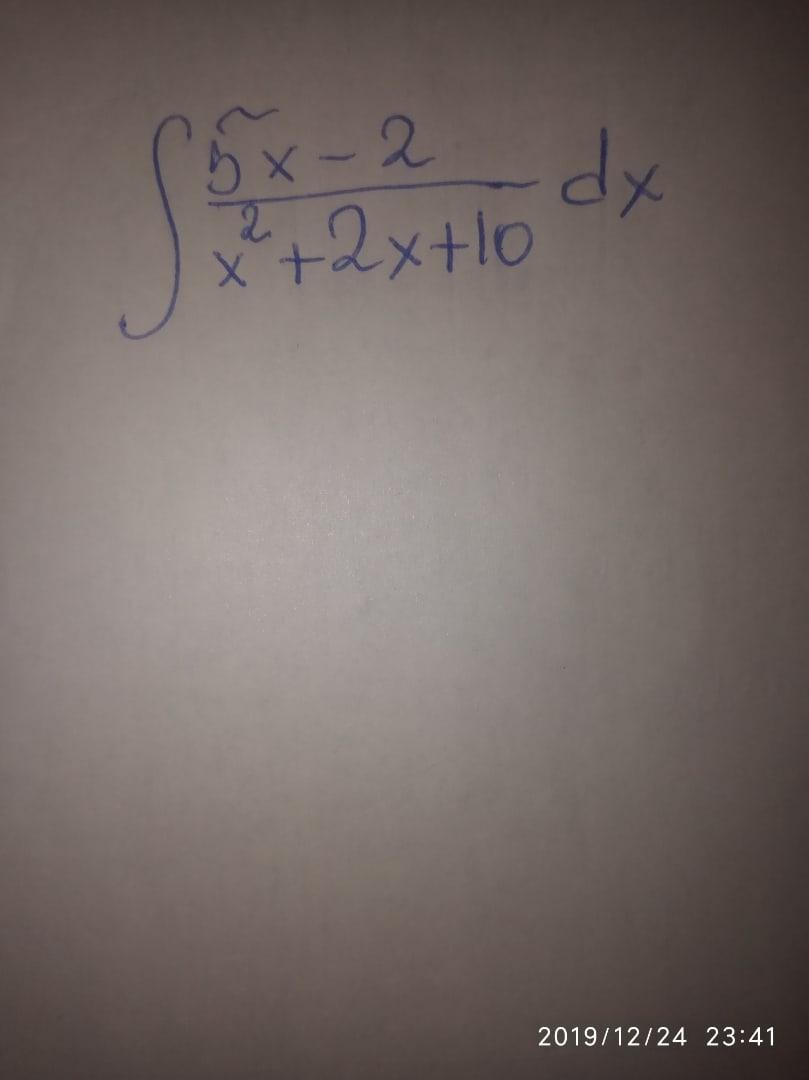 ∫ 5x - 2 dx
x² + 2x + 10
2019/12/24 23:41